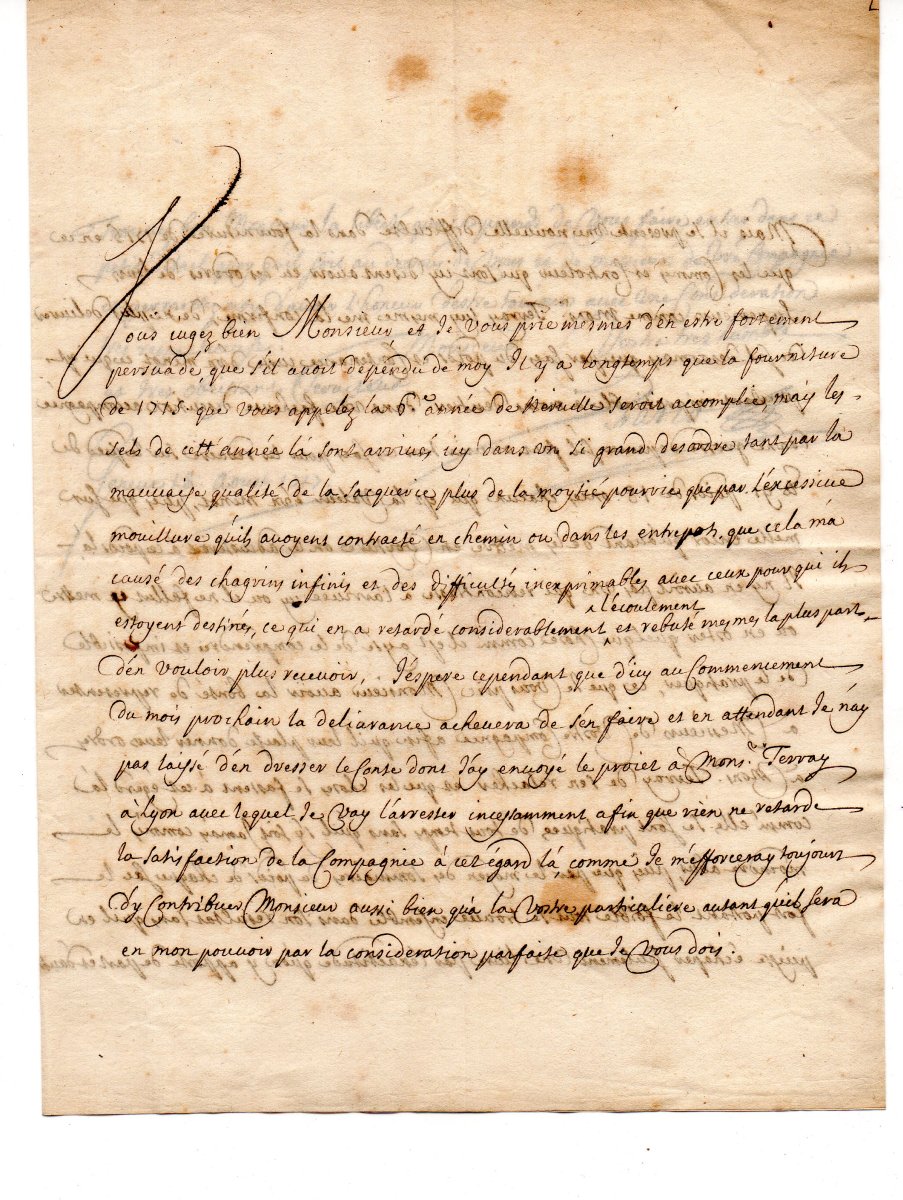 Vous iugez bien Monsieur et Je Vous prie mesmes d'en estre fortement
persuadé que S'il avoit dépendu de moy Il y a longtemps que la fourniture
de 1715. que Vous appelez la 6.e année de Heruille Seroit accomplie, mais les
Sels de cett' année lá Sont arriués icy dans Un Si grand desordre tant par la
mauuaise qualité de la Sacquerie plus de la moytié pourrie que par L'excessiue
mouillure qu'ils avoyent contracté en chemin ou dans les entrepots. que cela m'a
causé des chagrins infinis et des difficultés inexprimables avec ceux pour qui ils
estoyent destinés, ce qui en a retardé considerablement ^ l'écoulement et rebuté mesmes la plus part
d'en Vouloir plus receuoir, J'éspere cependant que d'icy au Commencement
du mois prochain la deliurance acheuera de S'en faire et en attendant Je n'ay
pas laissé d'en dresser le Conte dont J'ay envoyé le proiet à Mons.r Terray
à Lyon avec lequel Je Vay l'arrester incessamment afin que rien ne retarde
la Satisfaction de la Compagnie à cet égard lá, comme Je m'éfforceray toujours
d'y Contribuer Monsieur aussi bien qu'à la Vostre particuliere autant qu'il Sera
en mon pouuoir par la consideration parfaite que Je Vous dois.